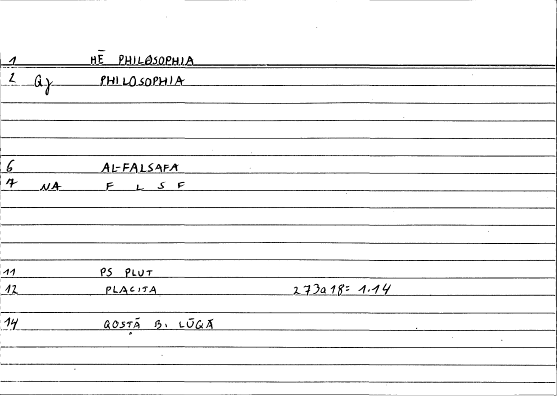 1 HĒ PHILOSOPHIA
2 Qj PHILOSOPHIA
6 AL-FALSAFA
7 NA F L S F
11 PS PLUT
12 PLACITA 273a18= 1.14
14 QOSṬĀ B. LŪQĀ